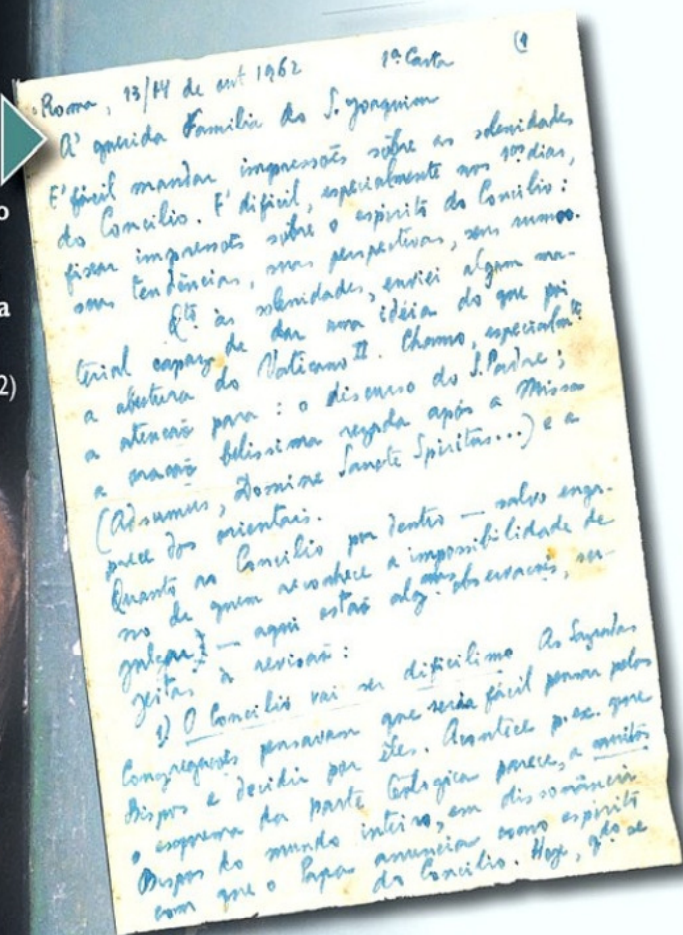 o
a
2)
Roma, 13/14 de out 1962 1ª Carta (1
A' querida Família do S. Joaquim
E' fácil mandar impressões sôbre as solenidades
do Concílio. E' difícil, especialmente nos 1ºs dias,
fixar impressões sôbre o espírito do Concílio:
suas tendências, suas perspectivas, seus rumos.
Qtº às solenidades, enviei algum ma-
terial capaz de dar uma idéia do que foi
a abertura do Vaticano II. Chamo, especialmte
a atenção para: o discurso do S. Padre;
a oração belíssima rezada após a Missa
(Adsumus, Domine Sancte Spiritus...) e a
prece dos orientais.
Quanto ao Concílio por dentro — salvo enga-
no de quem reconhece a impossibilidade de
julgar — aqui estão algumas observações, su-
jeitas à revisão:
1) O Concílio vai ser dificílimo. As Sagradas
Congregações pensavam que seria fácil pensar pelos
Bispos e decidir por êles. Acontece p. ex. que
o esquema da parte teológica parece, a muitos
Bispos do mundo inteiro, em dissonância
com que o Papa anuncia como espírito
do Concílio. Hoje, qdo se